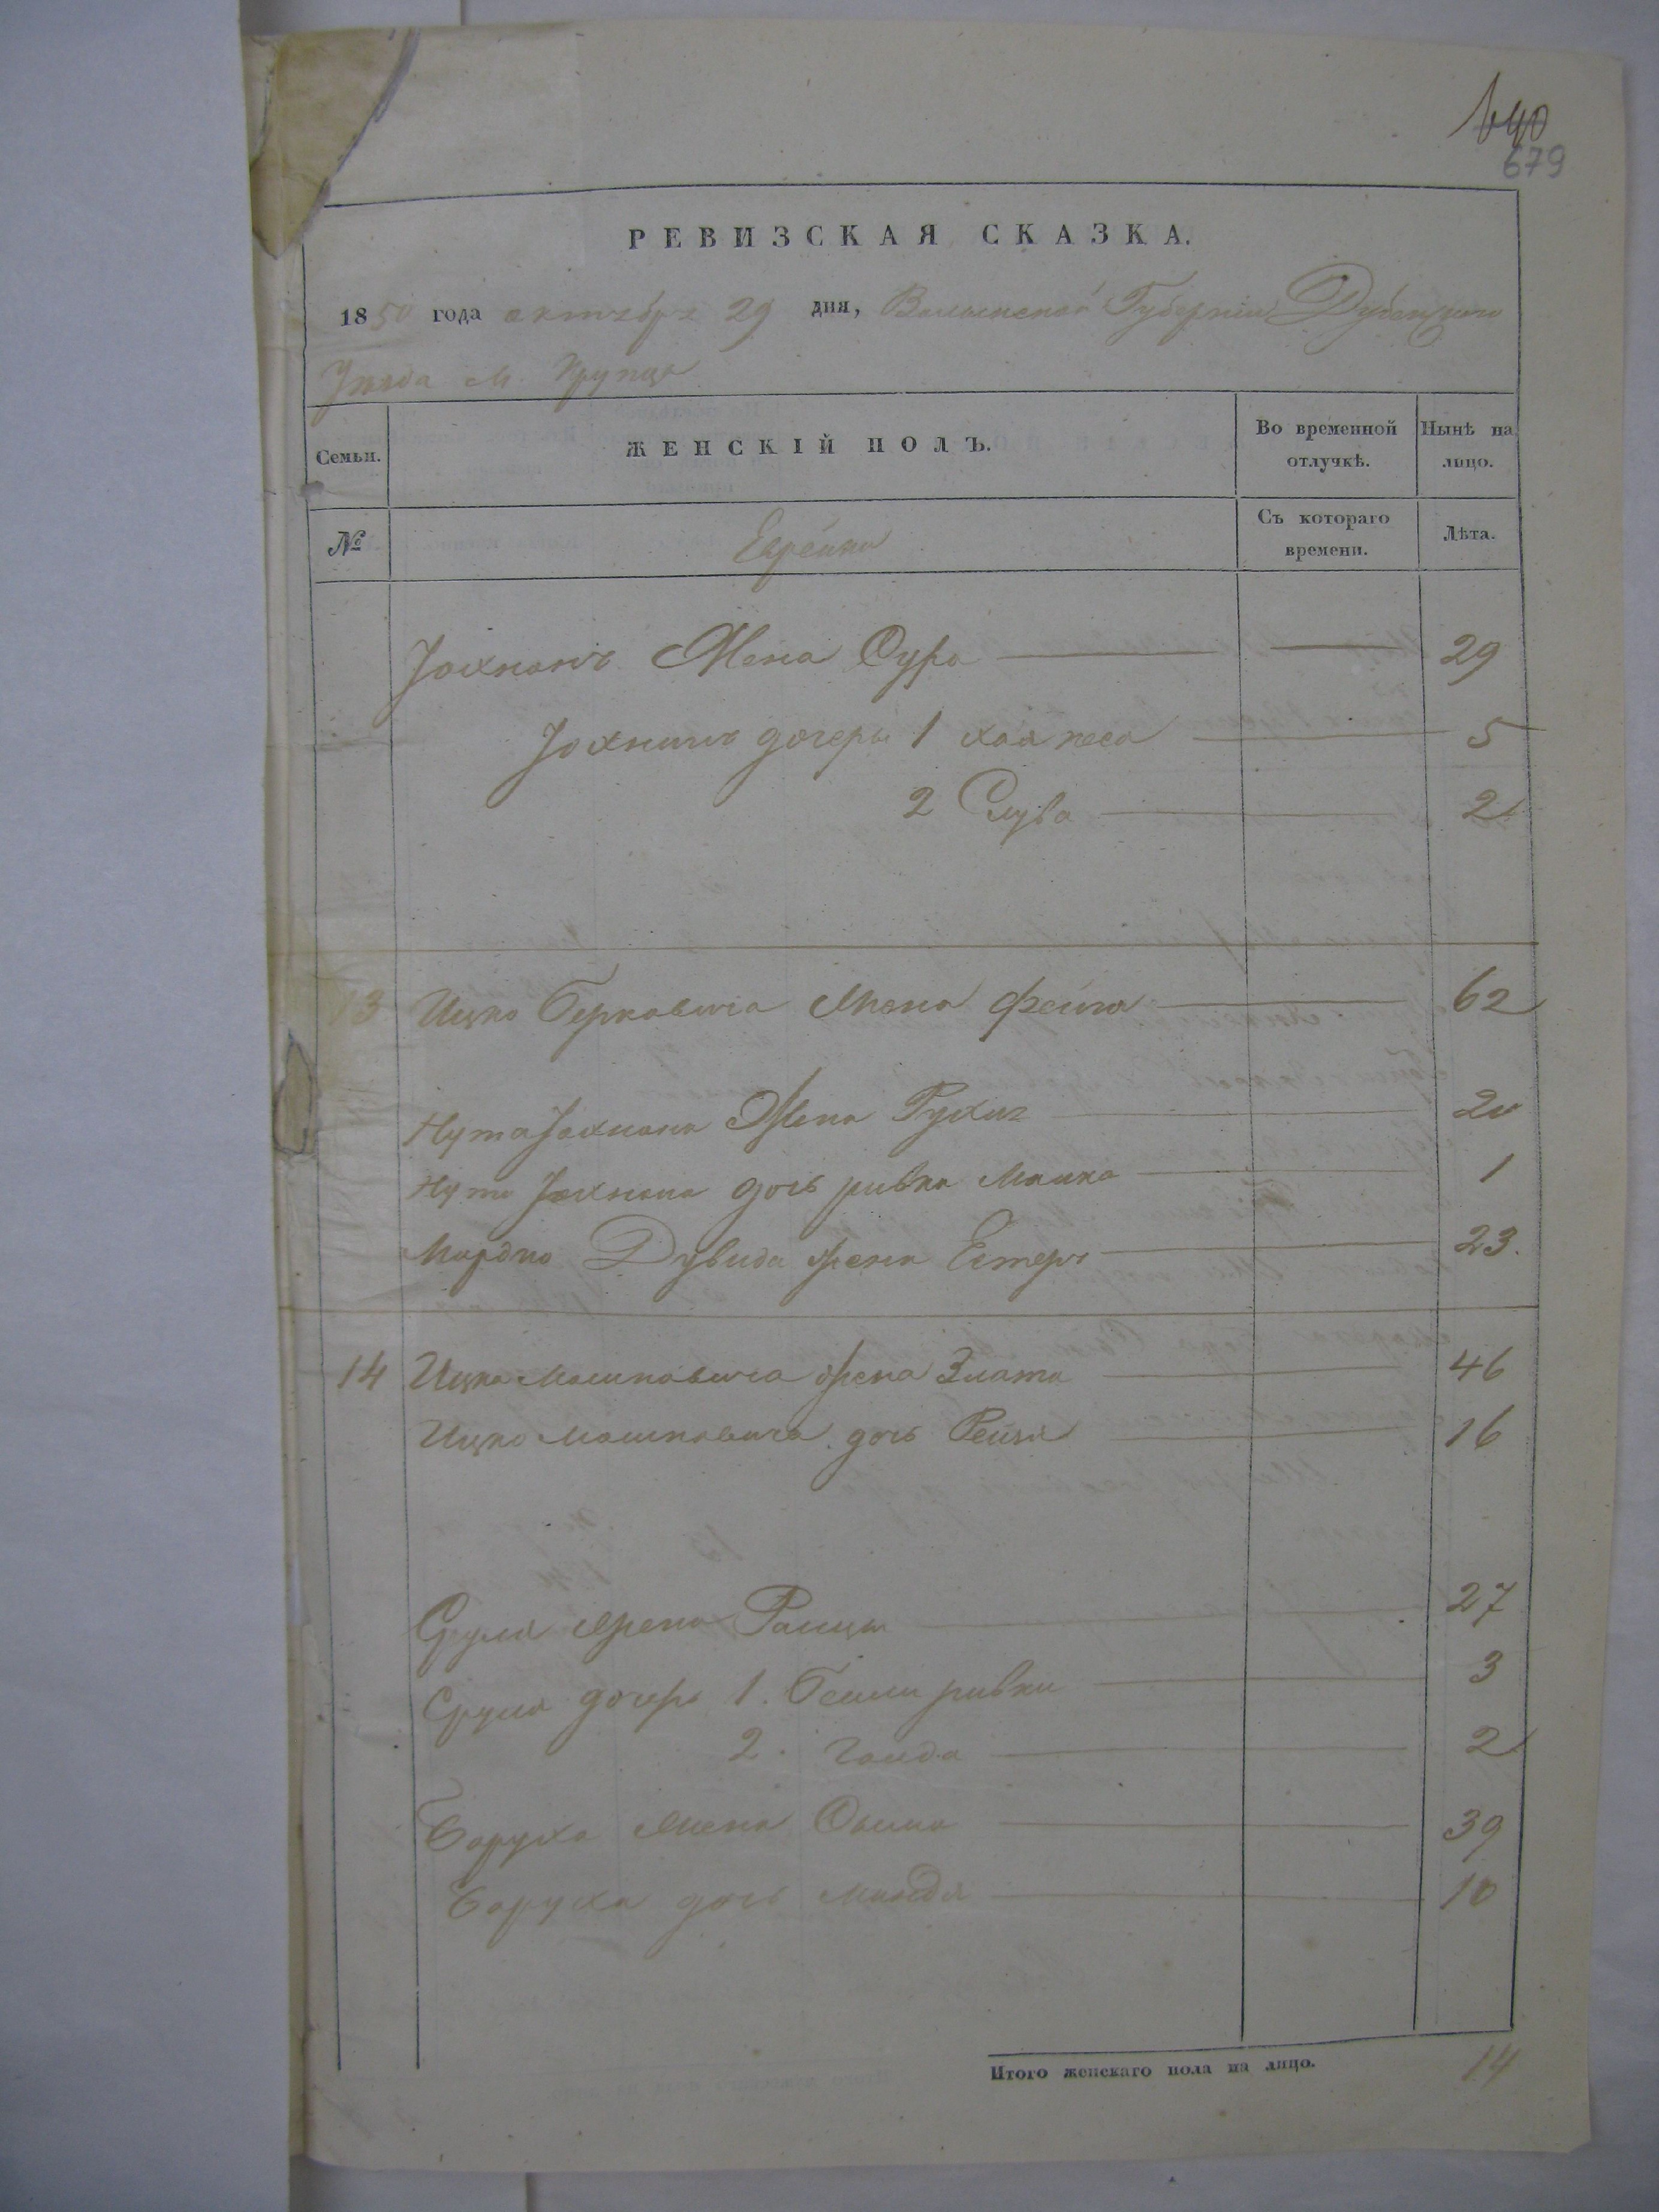 640
679
РЕВИЗСКАЯ СКАЗКА.
1850 года октября 29 дня, Волынской Губернии Дубенскаго
Уезда м. Крупца
Семьи. ЖЕНСКІЙ ПОЛЪ. Во временной отлучкѣ. Нынѣ на лицо.
№ Еврейки Съ котораго времени. Лѣта.
Іохнанъ Жена Сура 29
дочеры 1 Хая песа 5
2 Слува 2
13 Ицко Берковича Жена Фейга 62
Нута Іохнана Жена Рухля 20
Нута Іохнана дочь ривка Малка 1
Мордко Дувида жена Естеръ 23.
14 Ицко Мошковича жена Злата 46
Ицко Мошковича дочь Рейзя 16
Сруля жена 27
Сруля дочеръ 1. Бейли ривки 3
2. 2
Баруха Жена 39
Баруха дочь Миндя 10
Итого женскаго пола на лицо. 14